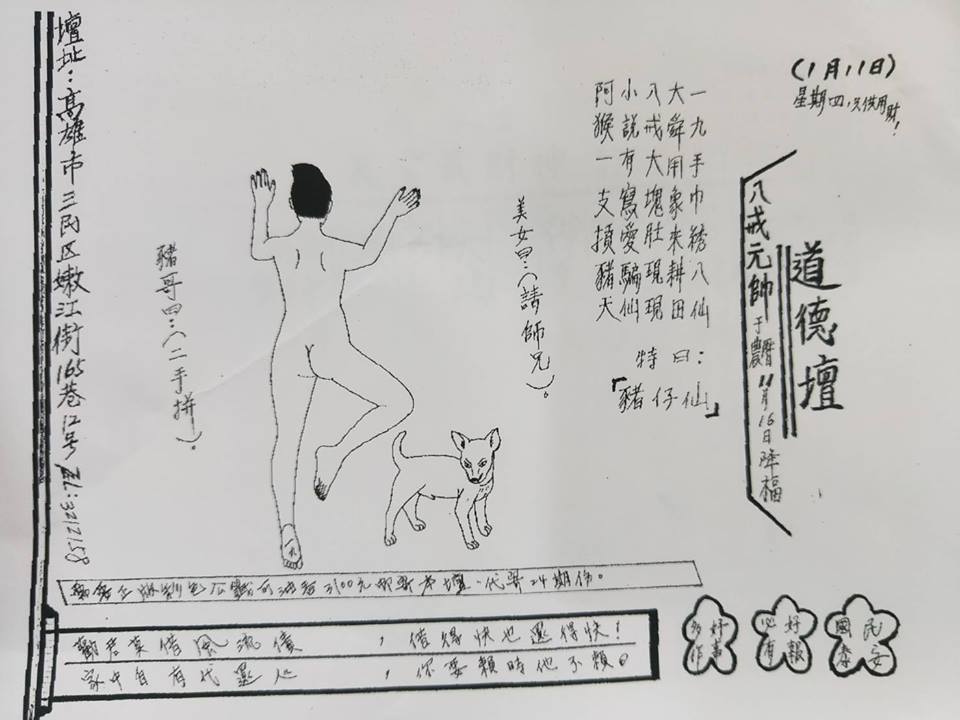 (1月11日)
星期四,只供用財!
道德壇
八戒元帥于農曆11月16日降福
一九手巾綉八仙
大舜用象来耕田
八戒大塊肚現現
小說有寫愛騙仙
阿猴一支損豬天
特曰:
「豬仔仙」
美女甲:(請師兄)。
豬哥甲:(二手拼)。
壇址:高雄市三民区嫩江街165巷12号 TEL:3212158
勸君莫借風流債,借得快也還得快!
家中自有代還人,你要賴時他不賴。
民安
國泰
好報
必有
好事
多作